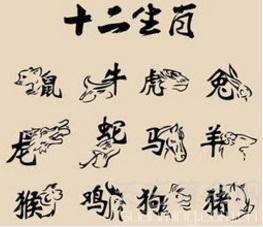 十二生肖
鼠 牛 虎 兔
蛇 马 羊
猴 鸡 狗 猪